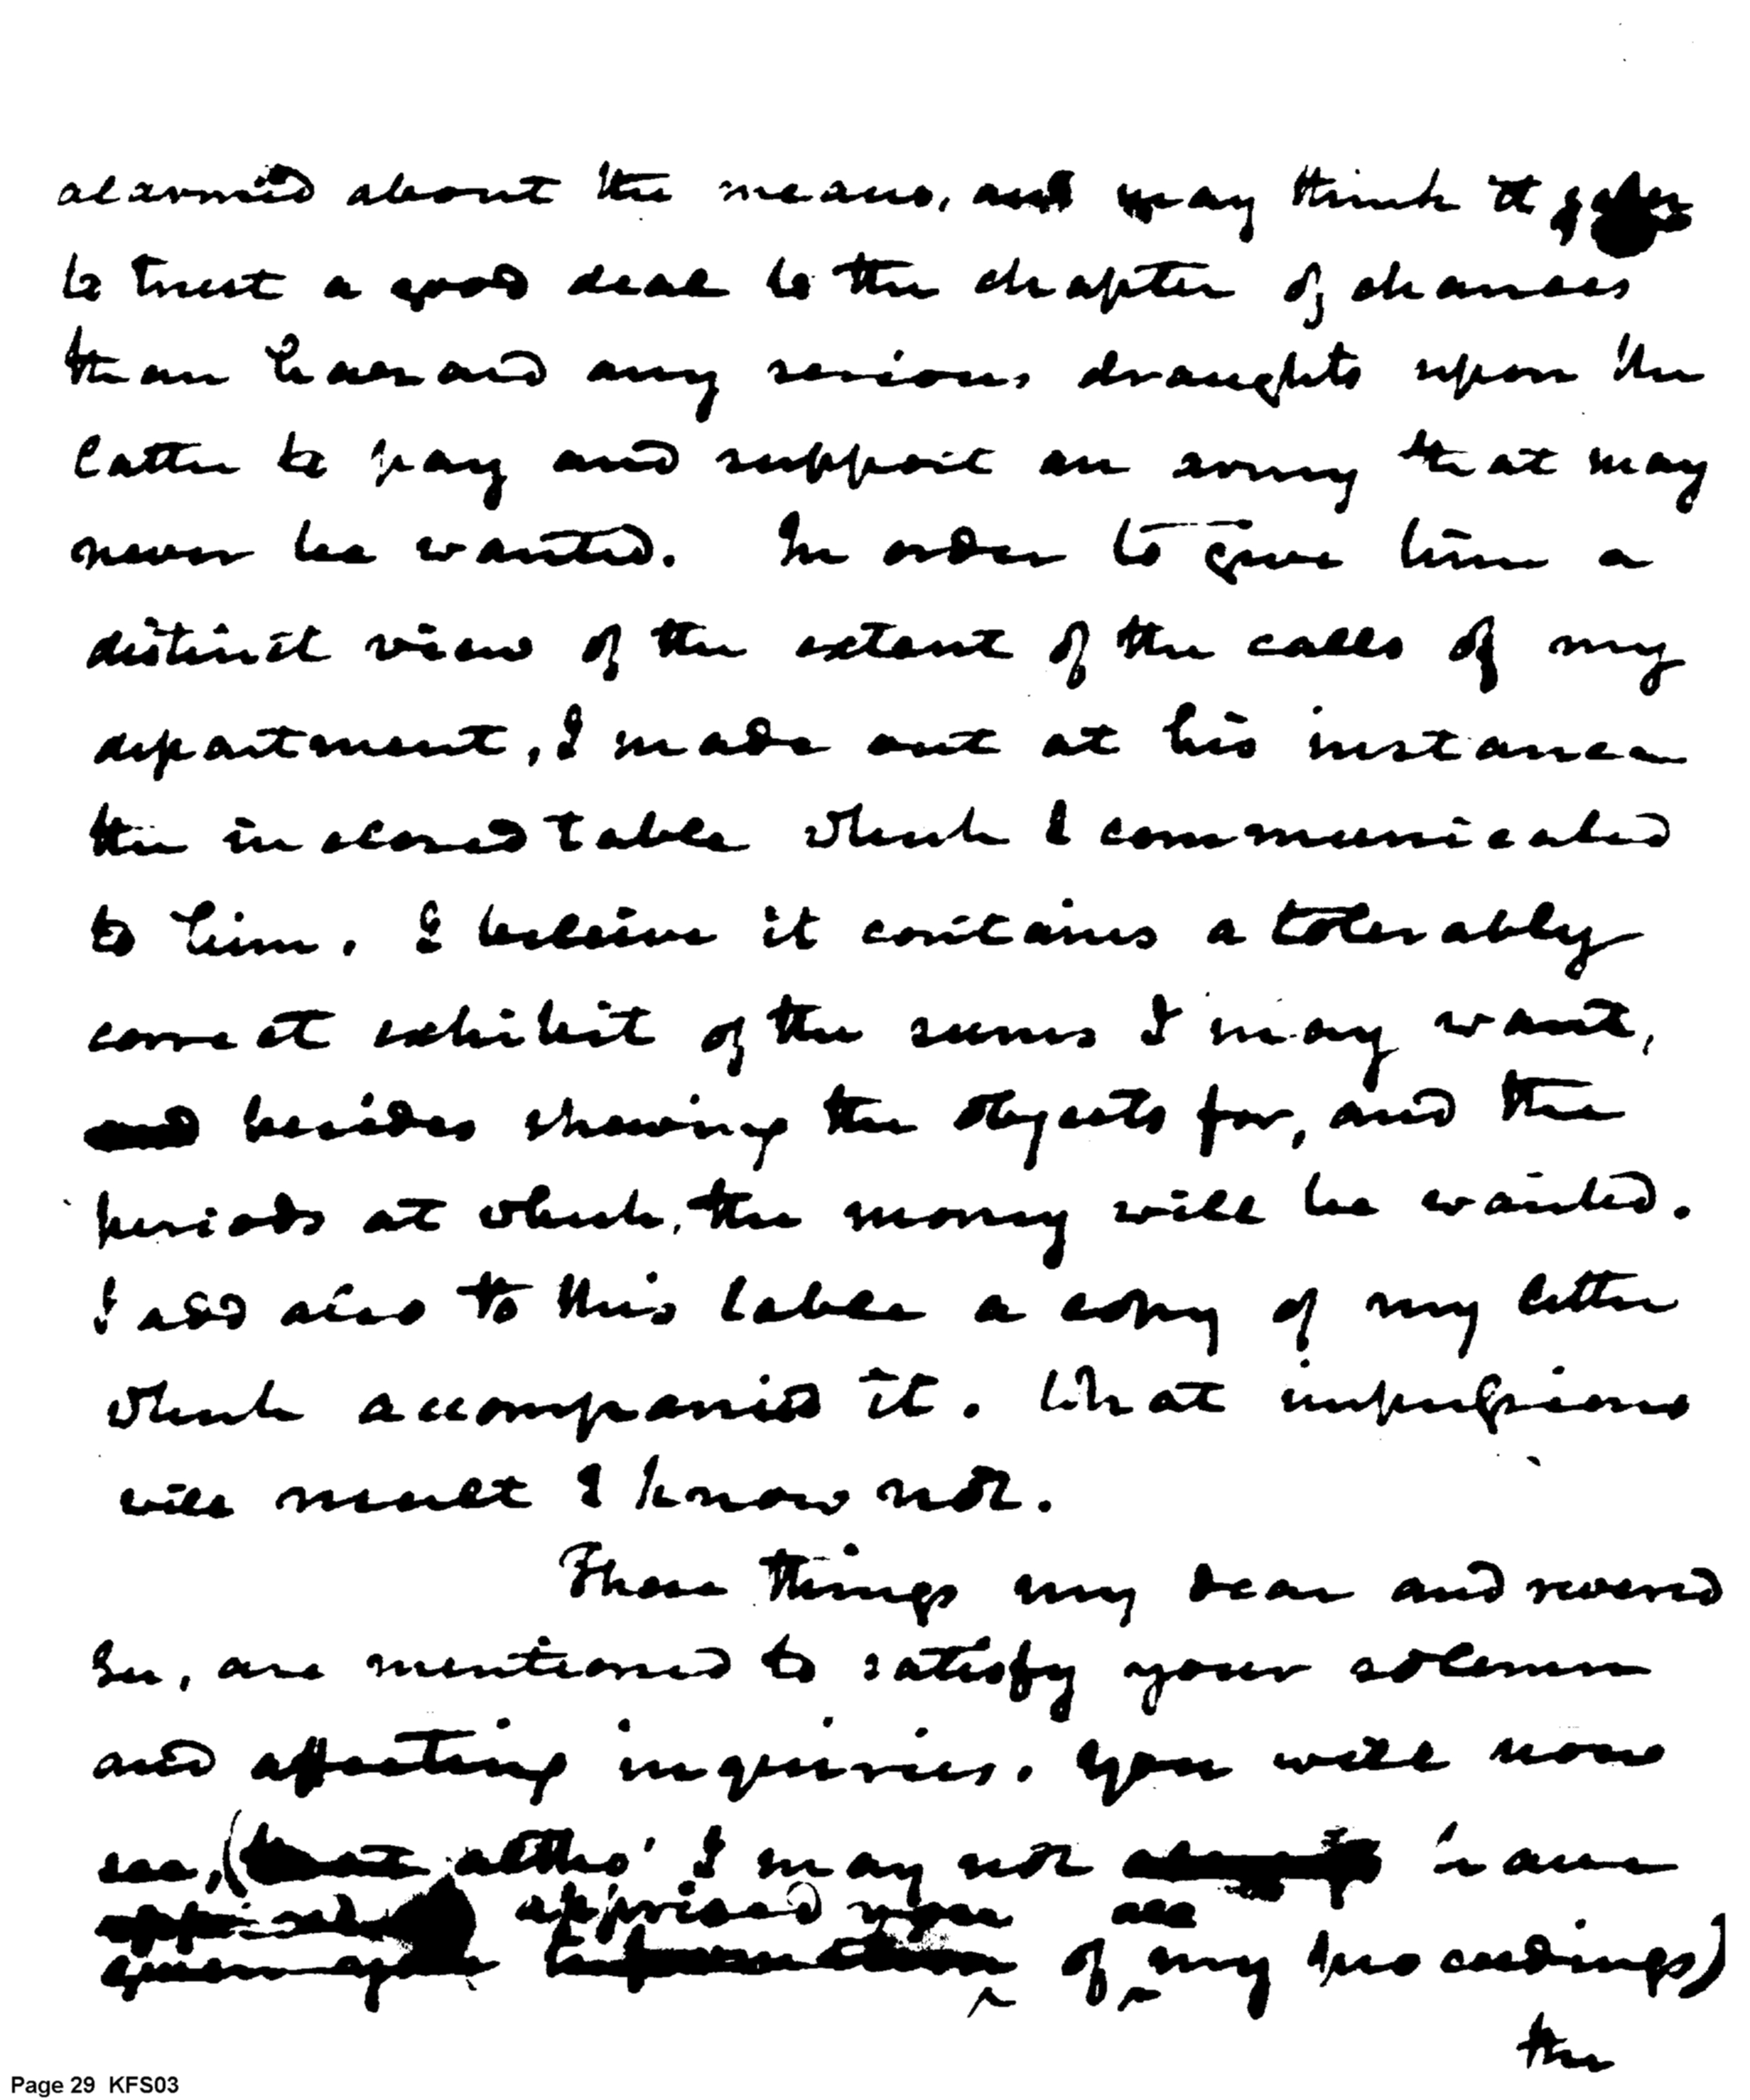 alarmed about the means, and may think it safer
to trust a good deal to the chapter of chances
than hazard any serious draughts upon the
latter to pay and support an army that may
never be wanted. In order to give him a
distinct view of the extent of the calls of my
department, I made out at his instance
the inclosed table which I communicated
to him. I believe it contains a tolerably
correct exhibit of the sums I may want,
and besides shewing the objects for, and the
periods at which, the money will be wanted.
I add also to this table a copy of my letter
which accompanied it. What impressions
will result I know not.
These things my dear and revered
Sir, are mentioned to satisfy your solemn
and affecting inquiries. You will now
see, (altho' I may not have
apprised you all
of my proceedings)
the
Page 29 KFS03